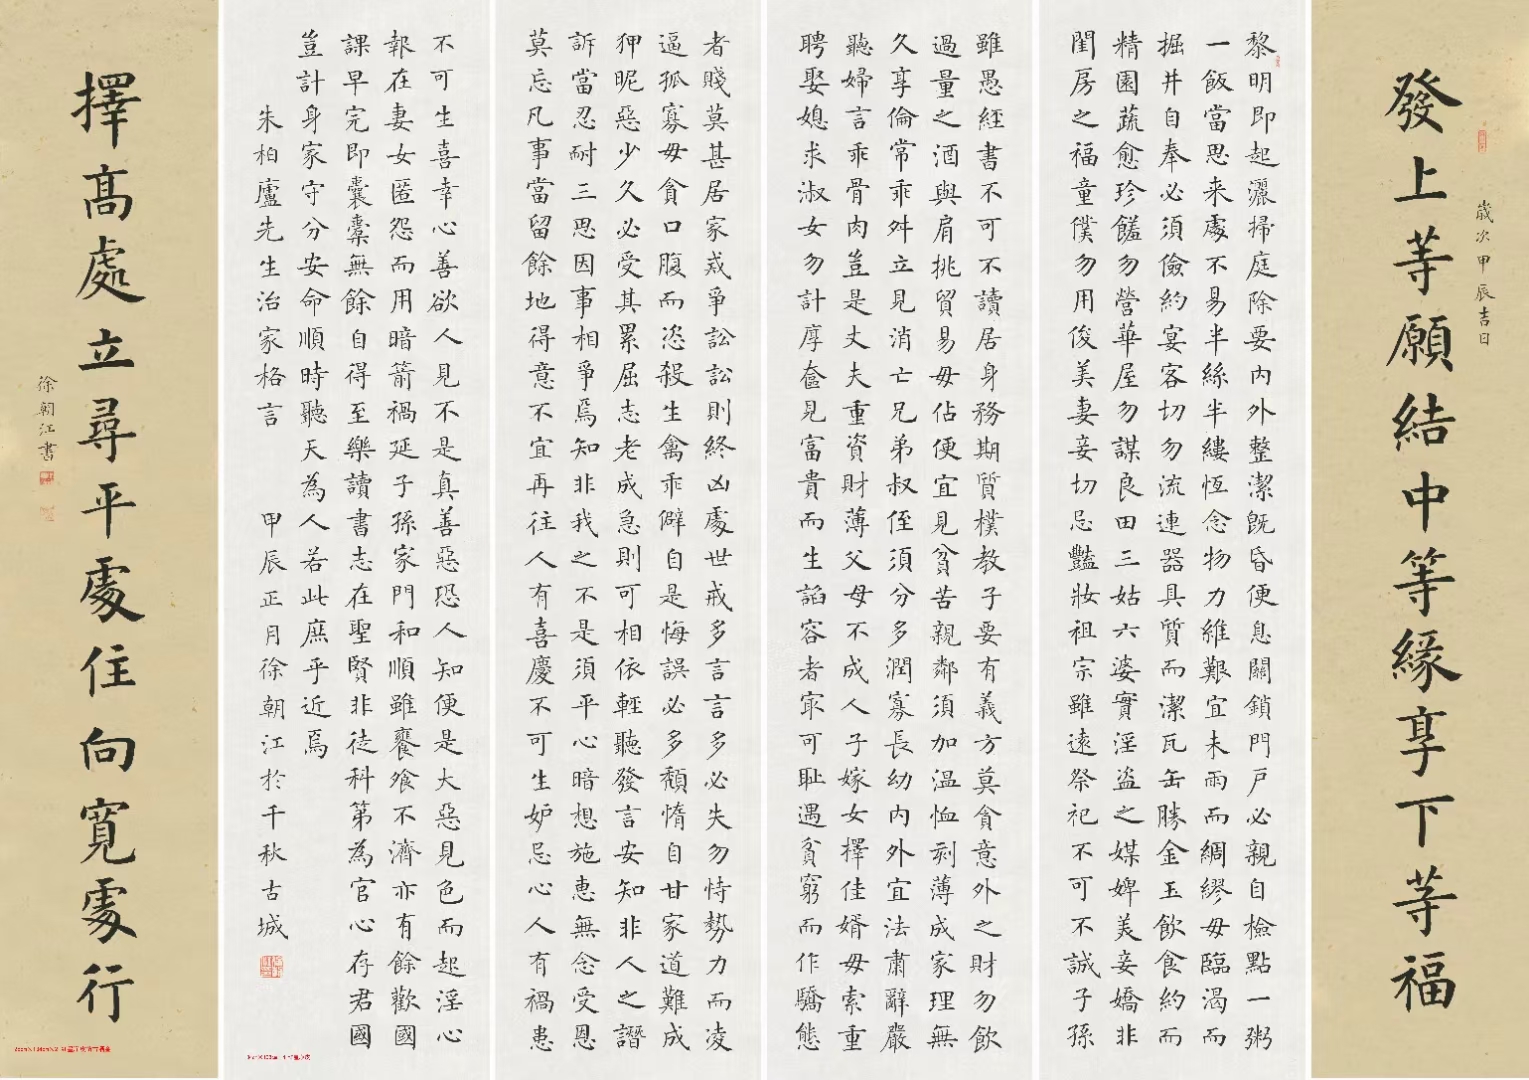 發上等願結中等緣享下等福
歲次甲辰吉日
黎明即起灑掃庭除要内外整潔既昏便息關鎖門戶必親自檢點一粥
一飯當思来處不易半絲半縷恆念物力維艱宜未雨而綢繆毋臨渴而
掘井自奉必須儉約宴客切勿流連器具質而潔瓦缶勝金玉飲食約而
精園蔬愈珍饈勿營華屋勿謀良田三姑六婆實淫盗之媒婢美妾嬌非
閨房之福童僕勿用俊美妻妾切忌豔妝祖宗雖遠祭祀不可不誠子孫
雖愚經書不可不讀居身務期質樸教子要有義方莫貪意外之財勿飲
過量之酒與肩挑貿易毋佔便宜見貧苦親鄰須加温恤刻薄成家理無
久享倫常乖舛立見消亡兄弟叔侄須分多潤寡長幼内外宜法肅辭嚴
聽婦言乖骨肉豈是丈夫重資財薄父母不成人子嫁女擇佳婿毋索重
聘娶媳求淑女勿計厚奩見富貴而生諂容者寂可耻遇貧窮而作驕態
者賤莫甚居家戒爭訟訟則終凶處世戒多言言多必失勿恃勢力而凌
逼孤寡毋貪口腹而恣殺生禽乖僻自是悔誤必多頹惰自甘家道難成
狎昵惡少久必受其累屈志老成急則可相依輕聽發言安知非人之譖
訴當忍耐三思因事相爭焉知非我之不是須平心暗想施惠無念受恩
莫忘凡事當留餘地得意不宜再往人有喜慶不可生妒忌心人有禍患
不可生喜幸心善欲人見不是真善惡恐人知便是大惡見色而起淫心
報在妻女匿怨而用暗箭禍延子孫家門和順雖饔飧不濟亦有餘歡國
課早完即囊橐無餘自得至樂讀書志在聖賢非徒科第為官心存君國
豈計身家守分安命順時聽天為人若此庶乎近焉
朱柏廬先生治家格言 甲辰正月徐朝江於千秋古城
擇高處立尋平處住向寬處行
徐朝江書